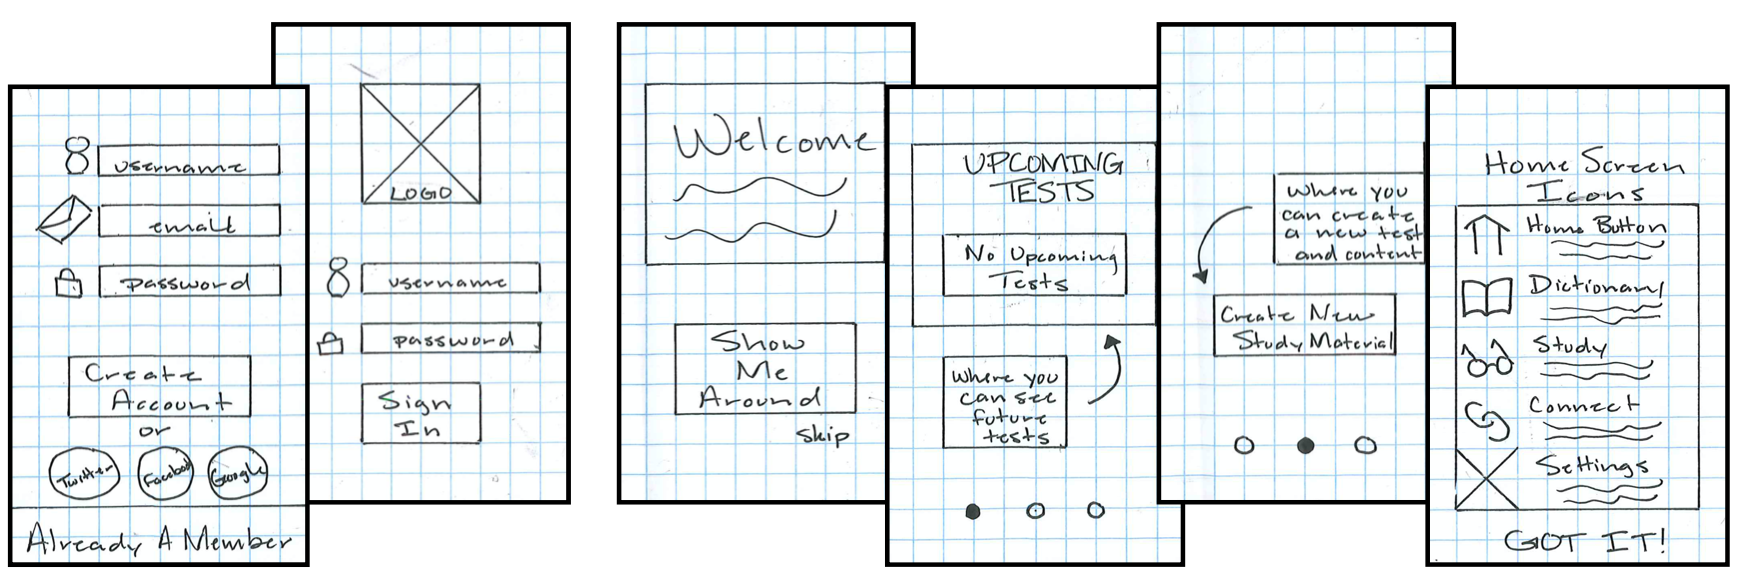 username
email
password
Create
Account
or
Twitter
Facebook
Google
Already A Member
LOGO
username
password
Sign
In
Welcome
Show
Me
Around
skip
UPCOMING
TESTS
No Upcoming
Tests
Where you
can see
future
tests
Where you
can create
a new test
and content
Create New
Study Material
Home Screen
Icons
Home Button
Dictionary
Study
Connect
Settings
GOT IT!